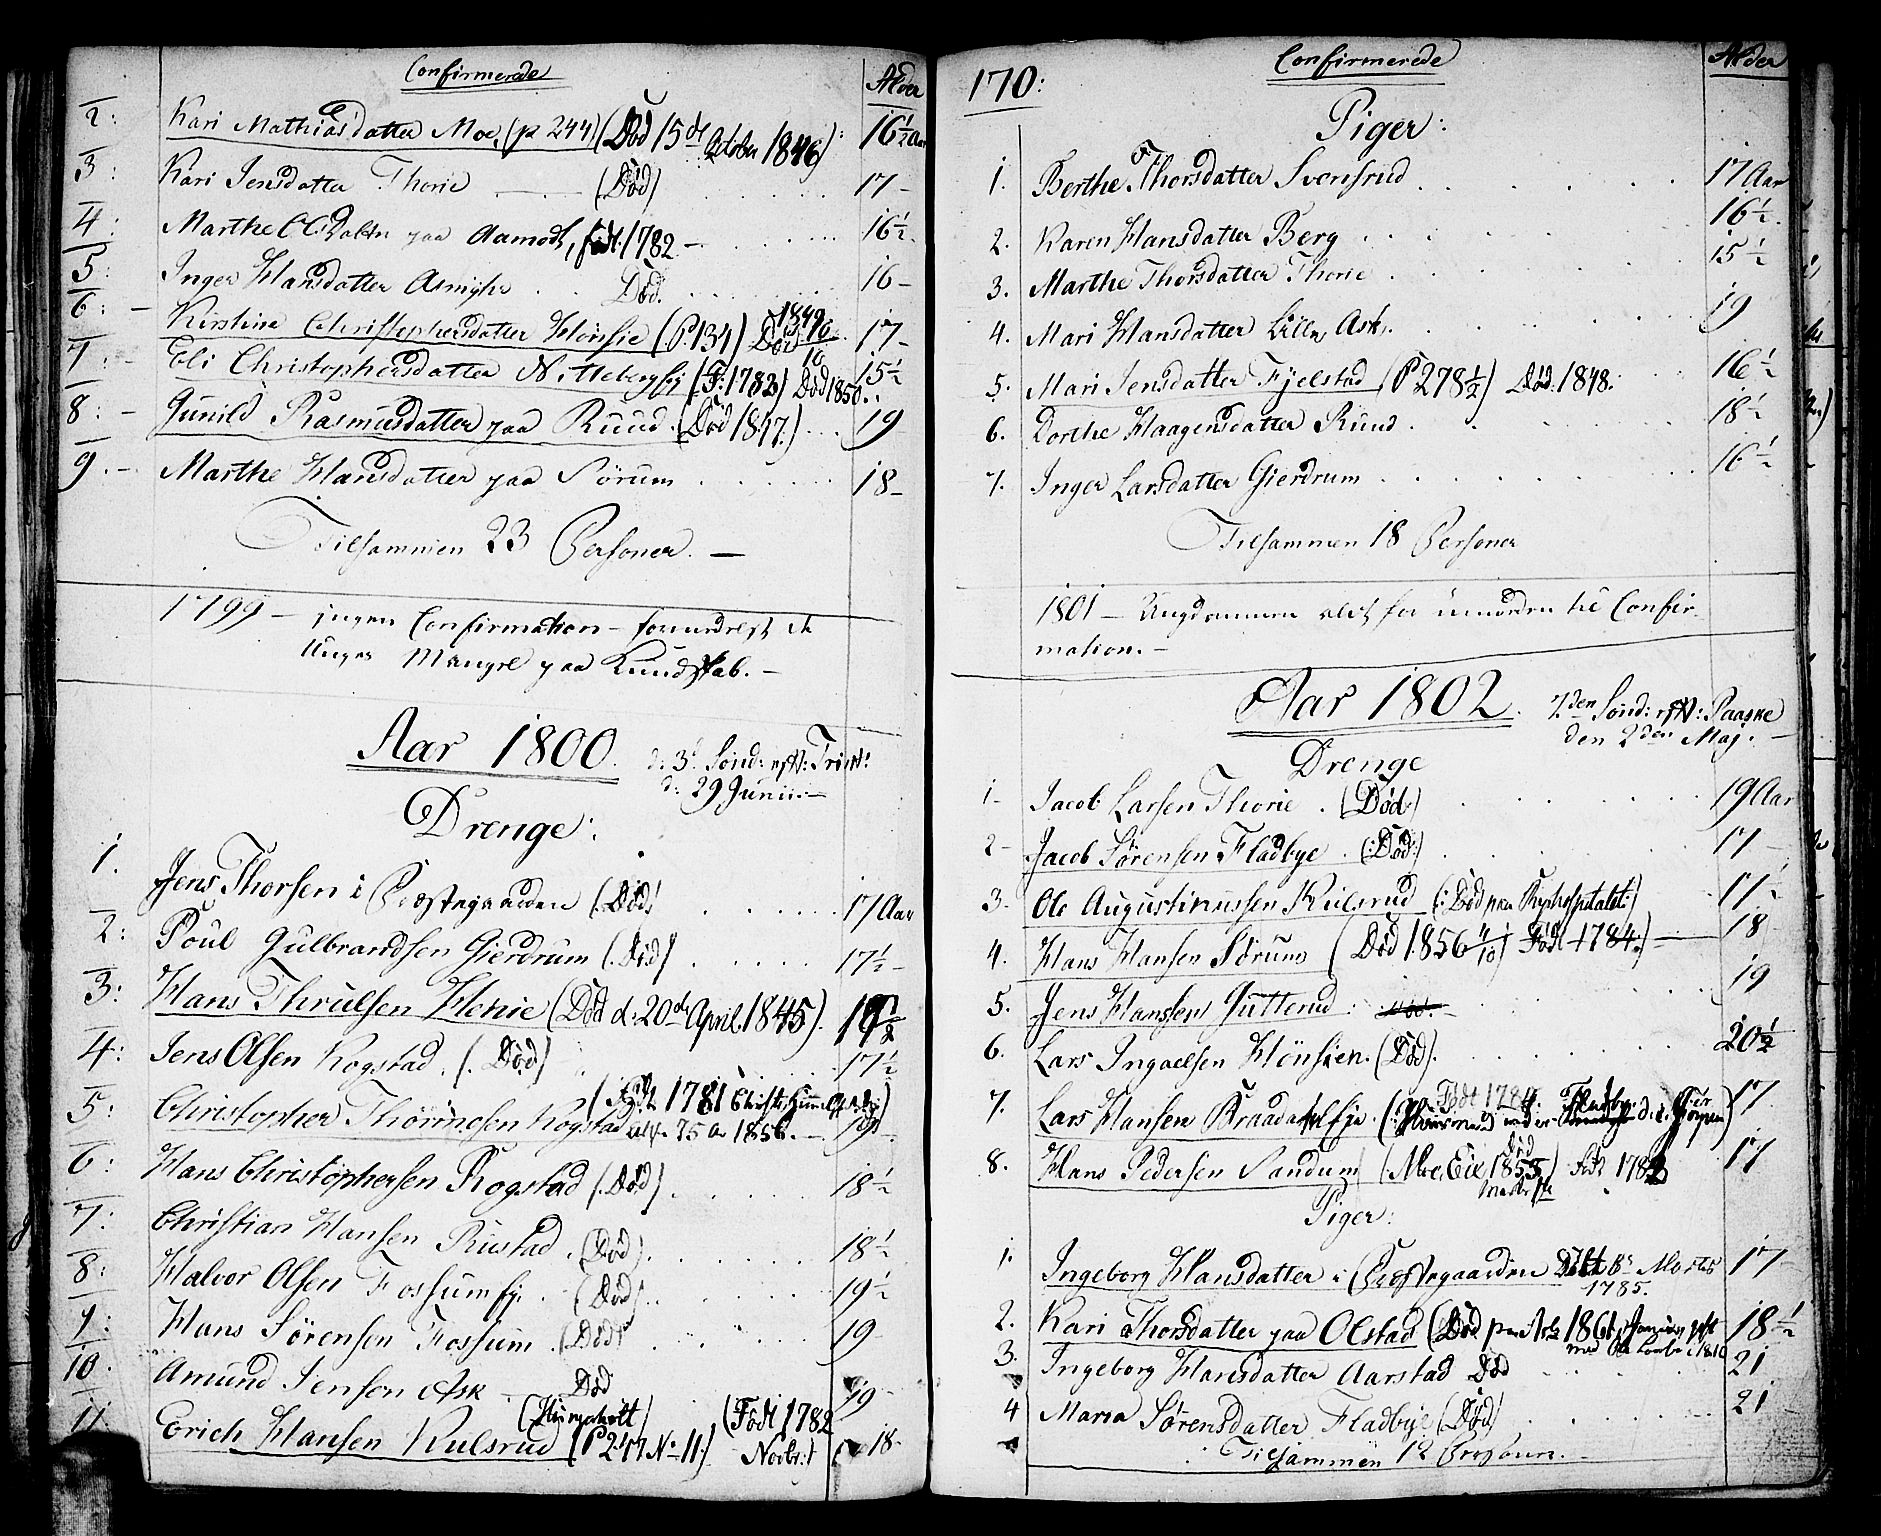 Confirmerede
Alder
2: Kari Mathiasdatter Moe, (p 244) (Død 15de October 1846): 16½ Aar
3: Kari Jensdatter Thorie (Død) 17 -
4: Marthe paa Aamodt, født 1782 - 16½
5: Inger Hansdatter Død. 16 -
6: - Kirstine Christophersdatter Hønsie (P. 134) Død 17 -
7: - Eli Christophersdatter Nittebergsy (F: 1782) Død 1850. 15½
8: - Gunild Rasmusdatter paa Ruud (Død 1847.) 19
9. - Marthe Hansdatter paa Sørum 18 -
Tilsammen 23 Personer. -
1799 - ingen Confirmation - formedelst de
Unges Mangel paa Kundskab. -
Aar 1800. d: 3d Sønd: eft: Trinit:
d: 29 Junii. -
Drenge:
1. Jens Thorsen i Præstegaarden (Død) 17 Aar
2: Poul Gulbrandsen Gjerdrum (Død) 17½ -
3: Hans Thrulsen Hexie (Død d. 20de April 1845).
4: Jens Olsen Rogstad. (. Død) 17½
5: Christopher Rogstad (Født 1781 75 Aar 1856. - 19
6: Hans Christophersen Rogstad (Død) 18½
7: Christian Hansen Rustad. (Død) 18½
8: Halvor Olsen Fossumsy. (Død) 19½
9: Hans Sørensen Fossum. (Død) 19
10. Amund Jensen Ask - Død 19 -
11. Erich Hansen Kulsrud (P 247 No 11.) (Født 1782 Novbr:) 18 -
170:
Confirmerede
Alder
Piger:
1. Berthe Thorsdatter Svensrud 17 Aar
2. Karen Hansdatter Berg 16½
3. Marthe Thorsdatter Thorie 15½
4. Mari Hansdatter Lille Ask. 19
5. Mari Jensdatter Fjelstad (P 278½) Død. 1848. 16½
6. Dorthe Haagensdatter Ruud 18½
7. Inger Larsdatter Gjerdrum 16½
Tilsammen 18 Personer
1801 - Ungdommen alt for umoden til Confir-
mation. -
Aar 1802. Sønd: eft: Paaske
den 2den Maj. -
Drenge
1 - Jacob Larsen Thorie. (Død.) 19 Aar
2 - Jacob Sørensen Fladbye. (:Død:) 17 -
3 - Ole Augustinussen Kulsrud (: Død paa :) 17½
4. Hans Hansen Sørum (Død 1856 4/10) Født 1784. 18
5. Jens Hansen Gutterud: Død. 19
6. Lars Ingvelsen Hønsien. (Død). 20½
7. Lars Hansen (Født 1784. 17
8. Hans Pedersen Sandum (Moe, Eie, Død 1855) født 17
Piger:
1. Ingeborg Hansdatter i Præstegaarden 1785. 17 -
2. Kari Thorsdatter paa Olstad (Død 1861, 18½
3. Ingeborg Hansdatter Aarstad Død 21
4 Maria Sørensdatter Fladbye (Død) 21
Tilsammen 12 Personer. -